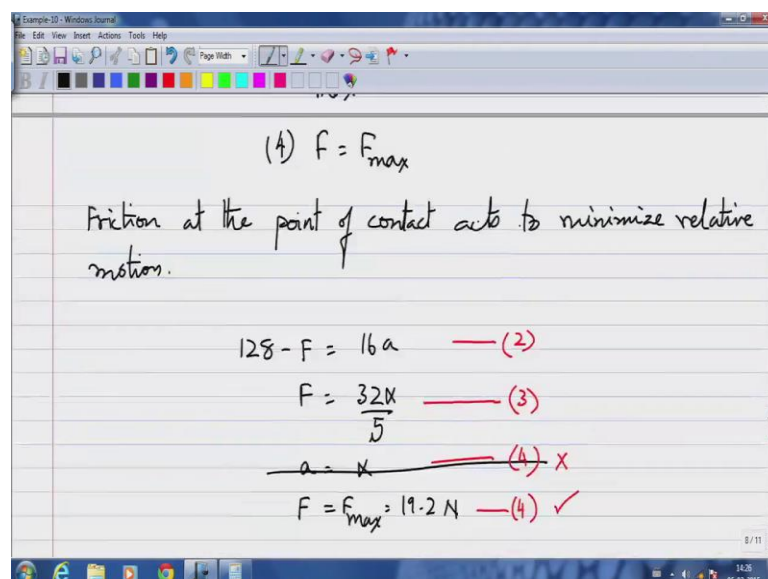 Example-10 - Windows Journal
File Edit View Insert Actions Tools Help
Page Width
B I
(4) F = Fmax
Friction at the point of contact acts to minimize relative
motion.
128 - F = 16a —(2)
F = 32α/5 —(3)
a = α —(4) x
F = Fmax = 19.2 N —(4) ✓
8/11
14:26